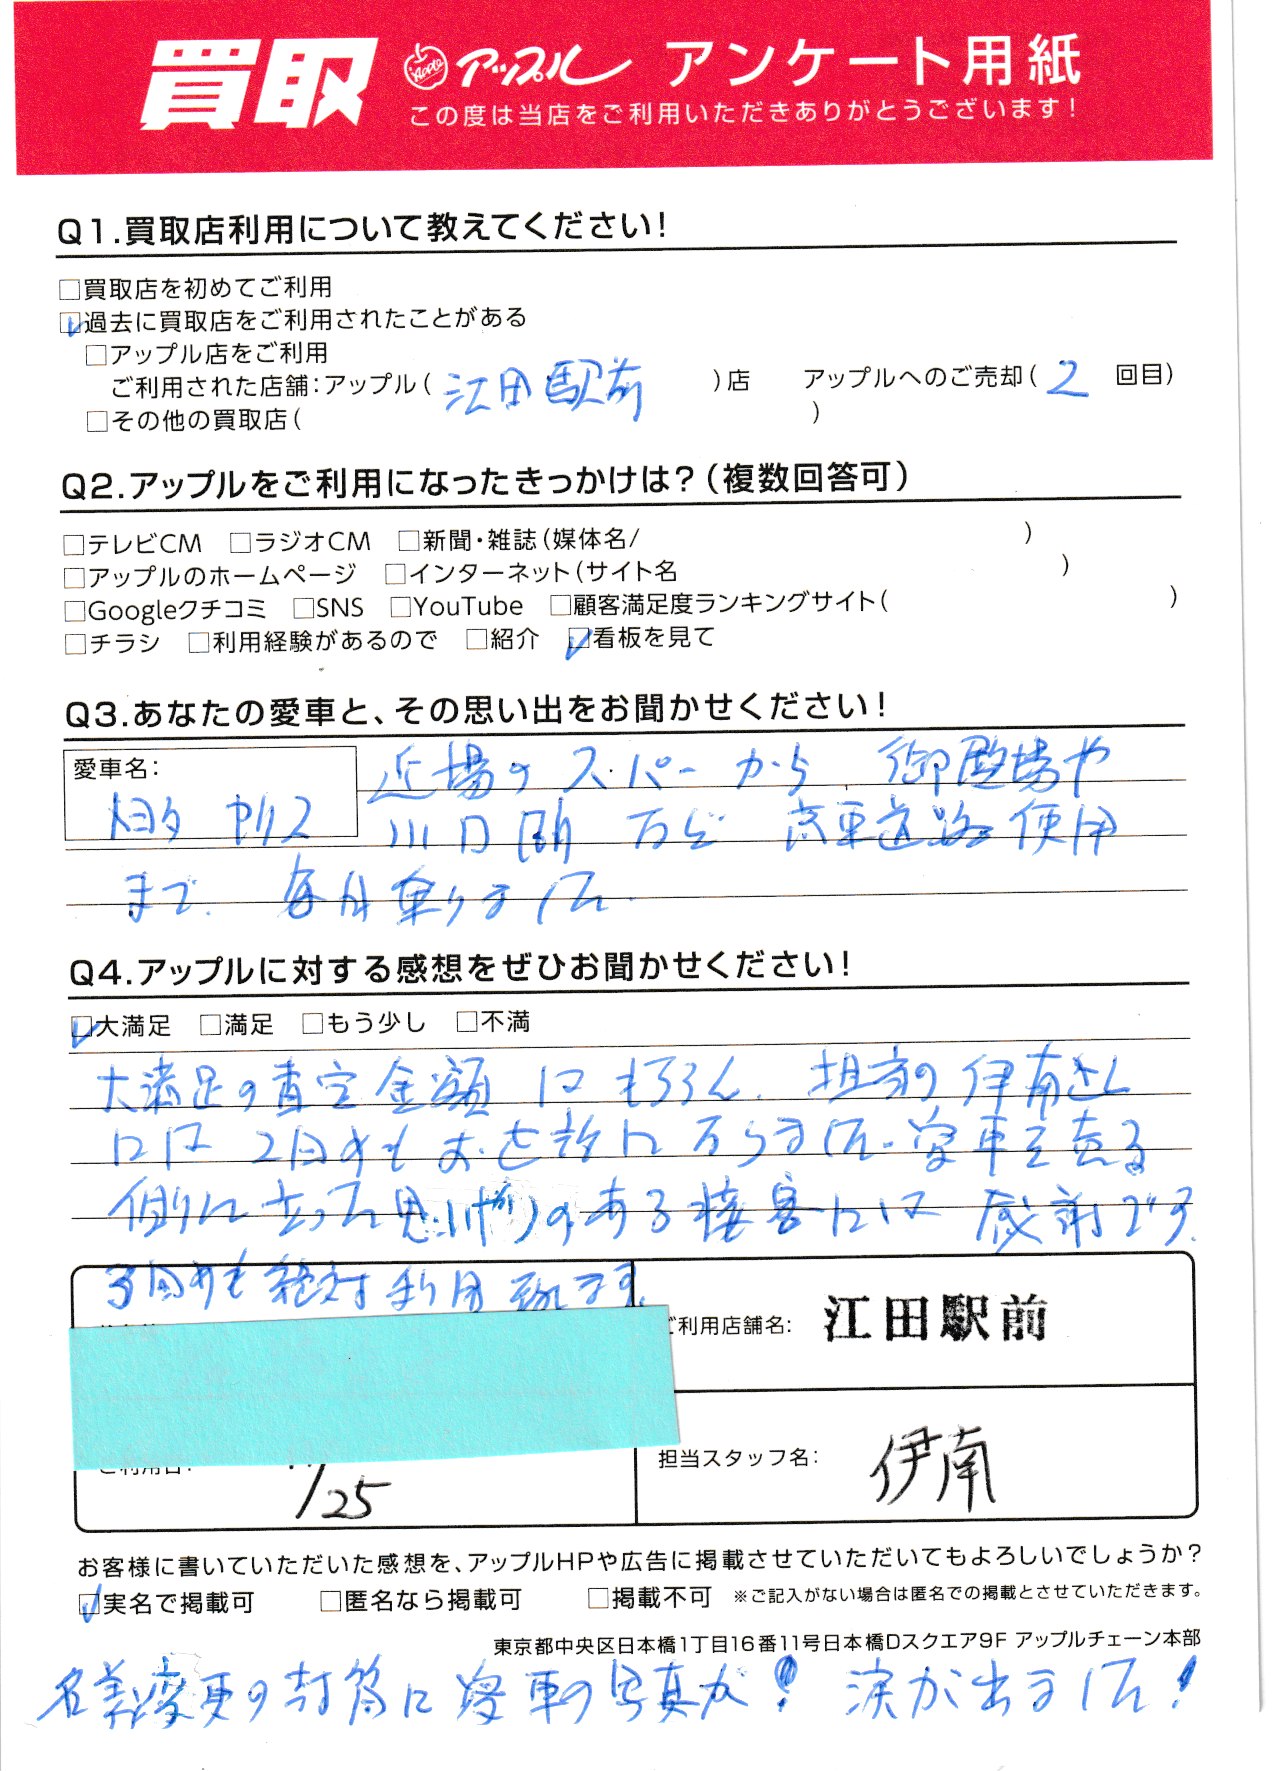 買取 アップル アンケート用紙
この度は当店をご利用いただきありがとうございます!
Q1.買取店利用について教えてください!
□買取店を初めてご利用
☑過去に買取店をご利用されたことがある
□アップル店をご利用
ご利用された店舗:アップル(江田駅前)店 アップルへのご売却(2回目)
□その他の買取店( )
Q2.アップルをご利用になったきっかけは?(複数回答可)
□テレビCM □ラジオCM □新聞・雑誌(媒体名/ )
□アップルのホームページ □インターネット(サイト名 )
□Googleクチコミ □SNS □YouTube □顧客満足度ランキングサイト( )
□チラシ □利用経験があるので □紹介 ☑看板を見て
Q3.あなたの愛車と、その思い出をお聞かせください!
愛車名:
トヨタ ヤリス
近場のスーパーから 御殿場や
川口湖など 高速道路使用
まで、毎月乗りました。
Q4.アップルに対する感想をぜひお聞かせください!
☑大満足 □満足 □もう少し □不満
大満足の査定金額はもちろん、担当の伊南さん
には2回めもお世話になりました。愛車を売る
側に立った思いやりのある接客には感謝です。
3回めも絶対利用致します。
ご利用店舗名: 江田駅前
/25
担当スタッフ名: 伊南
お客様に書いていただいた感想を、アップルHPや広告に掲載させていただいてもよろしいでしょうか?
☑実名で掲載可 □匿名なら掲載可 □掲載不可 ※ご記入がない場合は匿名での掲載とさせていただきます。
東京都中央区日本橋1丁目16番11号日本橋Dスクエア9F アップルチェーン本部
名義変更の封筒に愛車の写真が! 涙が出ました!